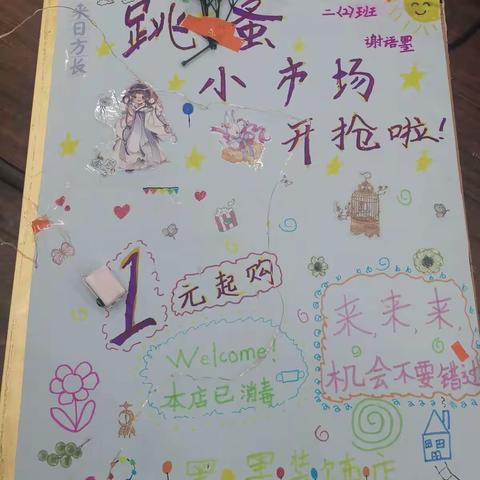 来日方长
跳蚤
二(2)班
谢语墨
小市场
开抢啦!
1
元起购
Welcome!
本店已消毒
来,来,来,
机会不要错过
墨墨装饰店